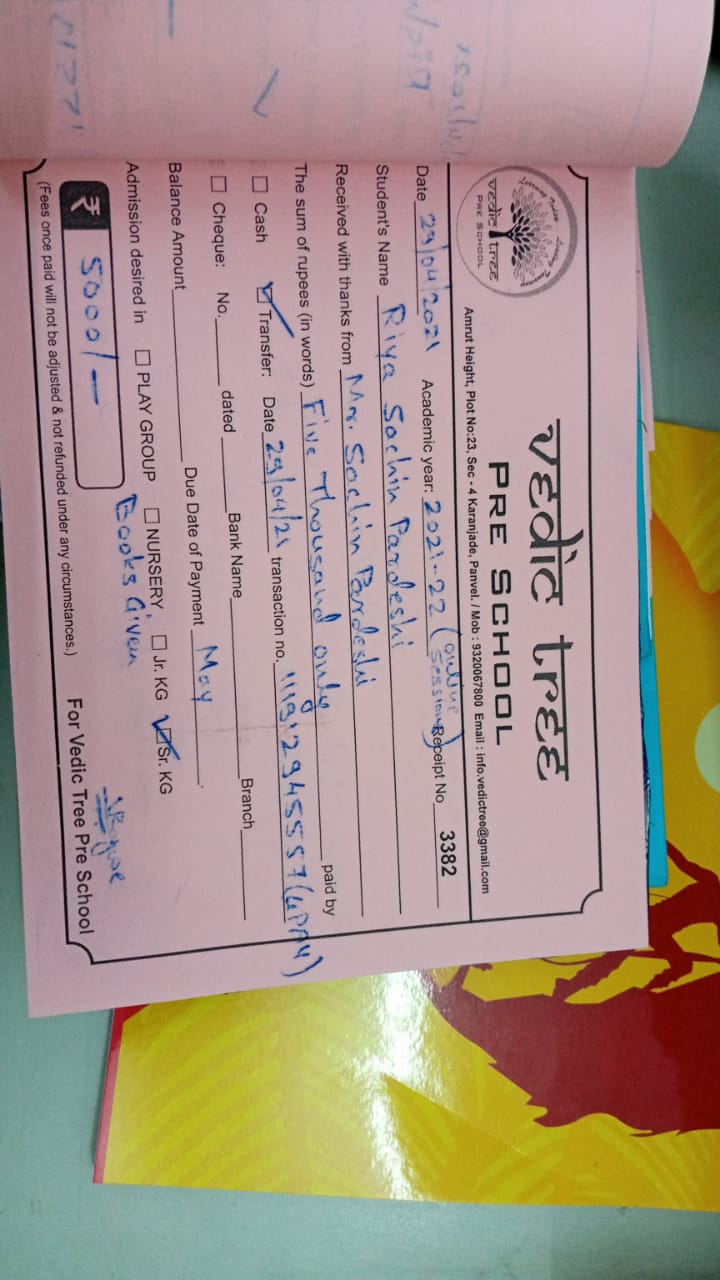 Learning Today Leading Tomorrow
vedic tree
PRE SCHOOL
vedic tree
PRE SCHOOL
Amrut Height, Plot No:23, Sec - 4 Karanjade, Panvel. / Mob : 9320067800 Email : info.vedictree@gmail.com
Date 29/04/2021 Academic year: 2021-22 (online session) Receipt No 3382
Student's Name Riya Sachin Pardeshi
Received with thanks from Mr. Sachin Pardeshi
The sum of rupees (in words) Five Thousand only paid by
Cash Transfer: Date 29/04/21 transaction no. (UPAY)
Cheque: No. dated Bank Name Branch
Balance Amount Due Date of Payment May
Admission desired in PLAY GROUP NURSERY Jr. KG Sr. KG
Books Given
₹ 5000/-
For Vedic Tree Pre School
(Fees once paid will not be adjusted & not refunded under any circumstances.)